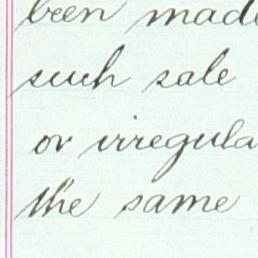 been made
such sale
or irregula
the same